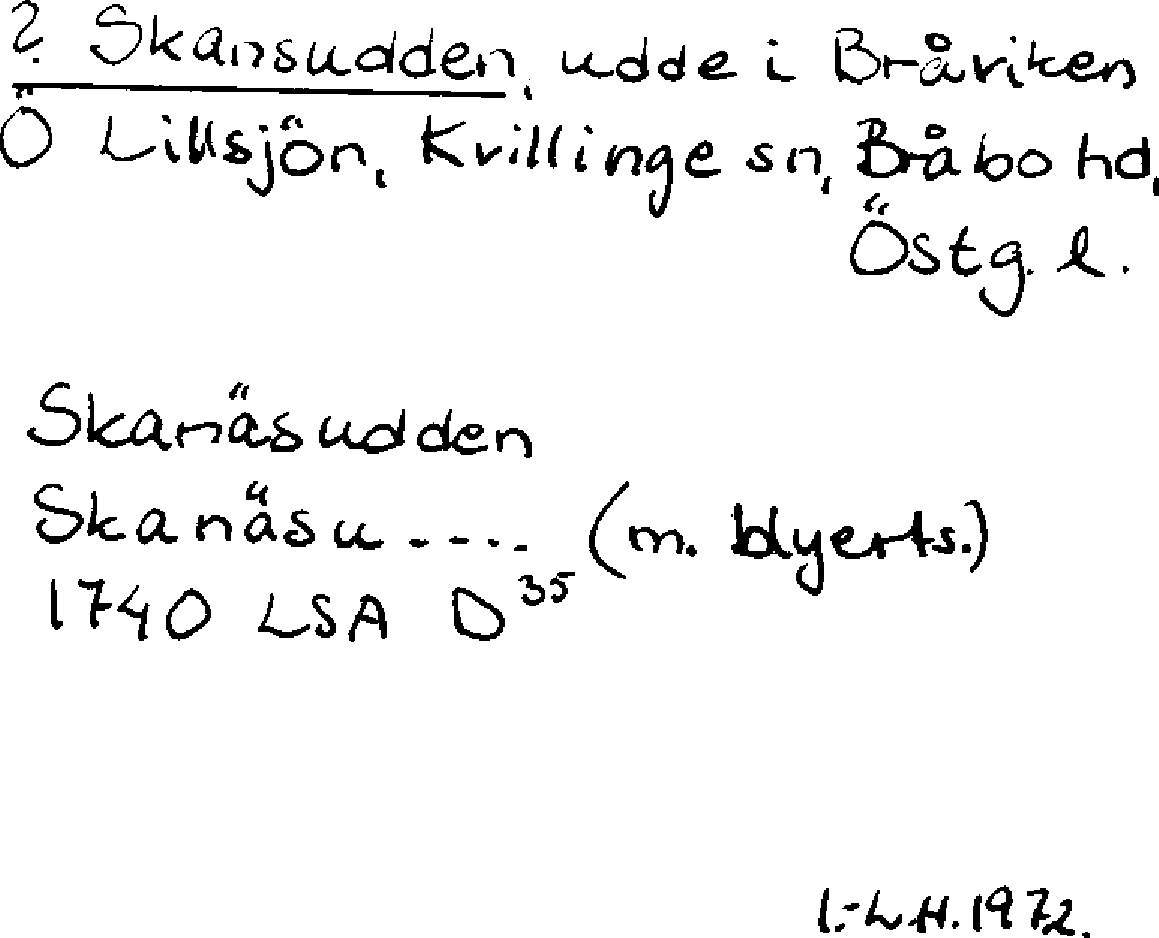 ? Skansudden, udde i Bråviken
Ö Lillsjön, Kvillinge sn, Bråbo hd,
Östg. l.
Skanäsudden
Skanäsu---- (m. blyerts.)
1740 LSA D³⁵
I.-L.H. 1972.